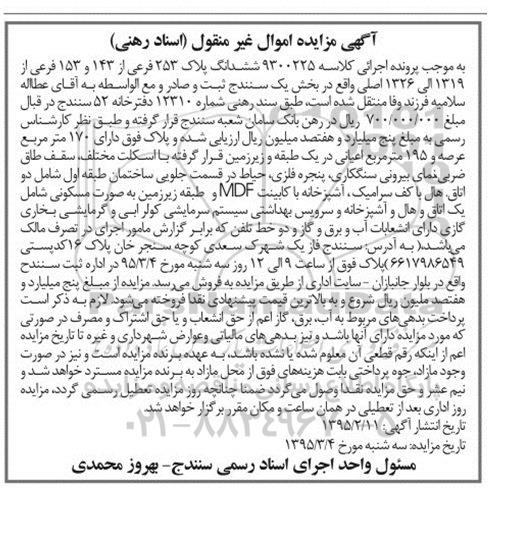 آگهی مزایده اموال غیر منقول (اسناد رهنی)
به موجب پرونده اجرائی کلاسه ۹۳۰۰۲۲۵ ششدانگ پلاک ۲۵۳ فرعی از ۱۴۳ و ۱۵۳ فرعی از
۱۳۱۹ الی ۱۳۲۶ اصلی واقع در بخش یک سنندج ثبت و صادر و مع الواسطه به آقای عطااله
سلامیه فرزند وفا منتقل شده است، طبق سند رهنی شماره ۱۲۳۱۰ دفترخانه ۵۲ سنندج در قبال
مبلغ ۷۰۰/۰۰۰/۰۰۰ ریال در رهن بانک سامان شعبه سنندج قرار گرفته و طبق نظر کارشناس
رسمی به مبلغ پنج میلیارد و هفتصد میلیون ریال ارزیابی شده و پلاک فوق دارای ۱۷۰ متر مربع
عرصه و ۱۹۵ مترمربع اعیانی در یک طبقه و زیرزمین قرار گرفته با اسکلت مختلف، سقف طاق
ضربی نمای بیرونی سنگکاری، پنجره فلزی، حیاط در قسمت جلویی ساختمان طبقه اول شامل دو
اتاق، هال با کف سرامیک، آشپزخانه با کابینت MDF و طبقه زیرزمین به صورت مسکونی شامل
یک اتاق و هال و آشپزخانه و سرویس بهداشتی سیستم سرمایشی کولر ابی و گرمایشی بخاری
گازی دارای انشعابات آب و برق و گاز و دو خط تلفن که برابر گزارش مامور اجرای در تصرف مالک
می‌باشد.( به آدرس: سنندج فاز یک شهرک سعدی کوچه سنجر خان پلاک ۱۶ کدپستی
۶۶۱۷۹۸۶۵۴۹) پلاک فوق از ساعت ۹ الی ۱۲ روز سه شنبه مورخ ۹۵/۳/۴ در اداره ثبت سنندج
واقع در بلوار جانبازان - سایت اداری از طریق مزایده به فروش می‌رسد. مزایده از مبلغ پنج میلیارد و
هفتصد ملیون ریال شروع و به بالاترین قیمت پیشنهادی نقدا فروخته می‌شود. لازم به ذکر است
پرداخت بدهی‌های مربوط به آب، برق، گاز اعم از حق انشعاب و یا حق اشتراک و مصرف در صورتی
که مورد مزایده دارای آنها باشد و نیز بدهی‌های مالیاتی و عوارض شهرداری و غیره تا تاریخ مزایده
اعم از اینکه رقم قطعی آن معلوم شده یا نشده باشد، به عهده برنده مزایده است و نیز در صورت
وجود مازاد، وجوه پرداختی بابت هزینه‌های فوق از محل مازاد به برنده مزایده مسترد خواهد شد و
نیم عشر و حق مزایده نقدا وصول می‌گردد ضمنا چنانچه روز مزایده تعطیل رسمی گردد، مزایده
روز اداری بعد از تعطیلی در همان ساعت و مکان مقرر برگزار خواهد شد.
تاریخ انتشار آگهی: ۱۳۹۵/۲/۱۱
تاریخ مزایده: سه شنبه مورخ ۱۳۹۵/۳/۴
مسئول واحد اجرای اسناد رسمی سنندج- بهروز محمدی